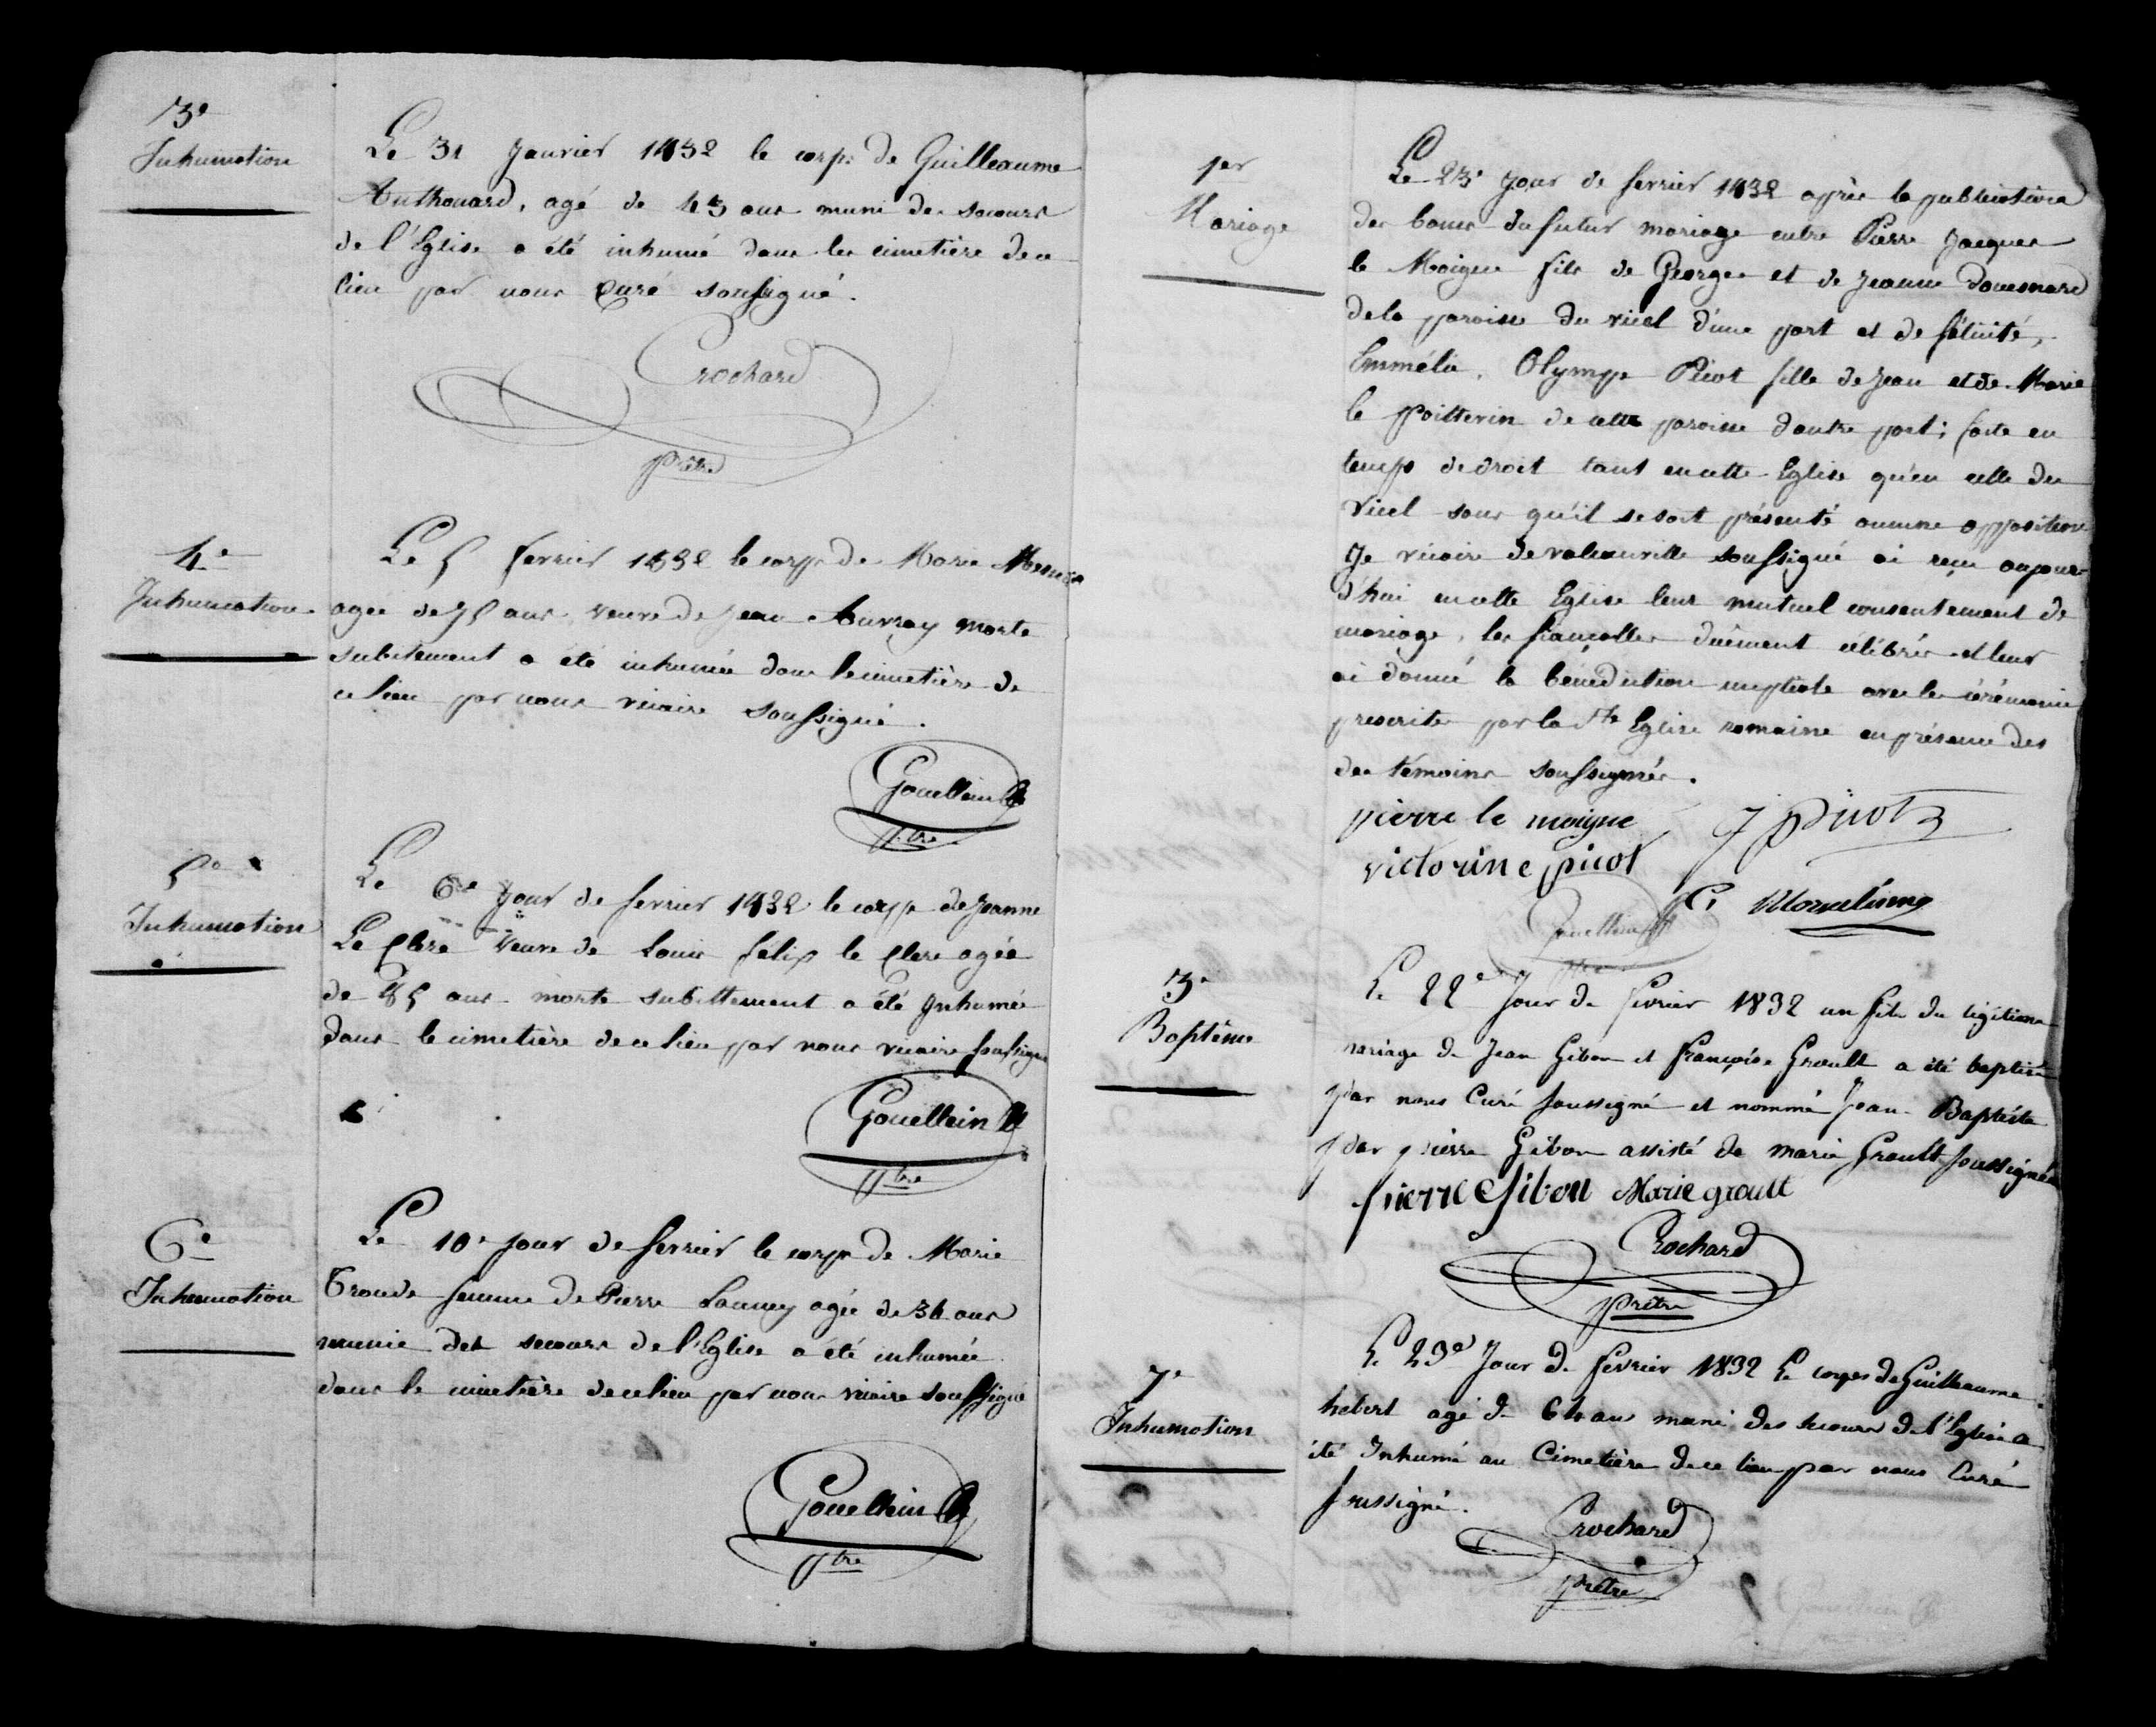 3e
Inhumation
Le 31 Janvier 1832 le corps de Guilleaume
Anthouard, agé de 43 ans muni des secours
de l'Eglise a été inhumé dans les cimetière de ce
lieu par nous Curé soussigné.
Crochard
prêtre
4e
Inhumation
Le 5 fevrier 1832 le corps de Marie
agee de 75 ans, veuve de Jean Auvray morte
subitement a été inhumée dans le cimetière de
ce lieu par nous vicaire soussigné.
Gouellain
ptre
5e
Inhumation
Le 6e Jour de fevrier 1832 le corps de Jeanne
Le Clerc veuve de Louis félix le Clerc agée
de 85 ans morte subittement a été Inhumée
dans le cimetière de ce lieu par nous vicaire soussigné
Gouellain
ptre
6e
Inhumation
Le 10e Jour de fevrier le corps de Marie
Troude femme de Pierre Launey agée de 34 ans
munie des secours de l'Eglise a été inhumée
dans le cimetière de ce lieu par nous vicaire soussigné
Gouellain
ptre
1er
Mariage
Le 23e Jour de fevrier 1832 après la publication
des bans du futur mariage entre Pierre Jacques
le Moigne fils de George et de Jeanne Douesnard
de la paroisse du vicel d'une part et de félicité,
Emmélie, Olympe Picot fille de Jean et de Marie
le Poittevin de cette paroisse d'autre part; faite en
temps de droit tant en cette Eglise qu'en celle du
Vicel sans qu'il se soit présenté aucune opposition
Je vicaire de valcanville soussigné ai reçu aujour
d'hui en cette Eglise leur mutuel consentement de
mariage, les fiançailles duêment célébrés et leur
ai donné la bénédiction nuptiale avec les cérémonies
prescrites par la Ste Eglise romaine en présence des
des témoins soussignés.
pierre le moigne J picot
victorine picot
Gouellain
ptre
3e
Baptême
Le 22e Jour de fevrier 1832 un fils du légitime
mariage de Jean Gibon et françoise Groult a été baptisé
par nous Curé soussigné et nommé Jean Baptiste
par pierre Gibon assisté de marie Groult soussignés
pierre Gibon Marie groult
Crochard
prêtre
7e
Inhumation
Le 23e Jour de fevrier 1832 Le corps de Guilleaume
hebert agé de 64 ans muni des secours de l'Eglise a
été Inhumé au Cimetière de ce lieu par nous Curé
soussigné.
Crochard
prêtre